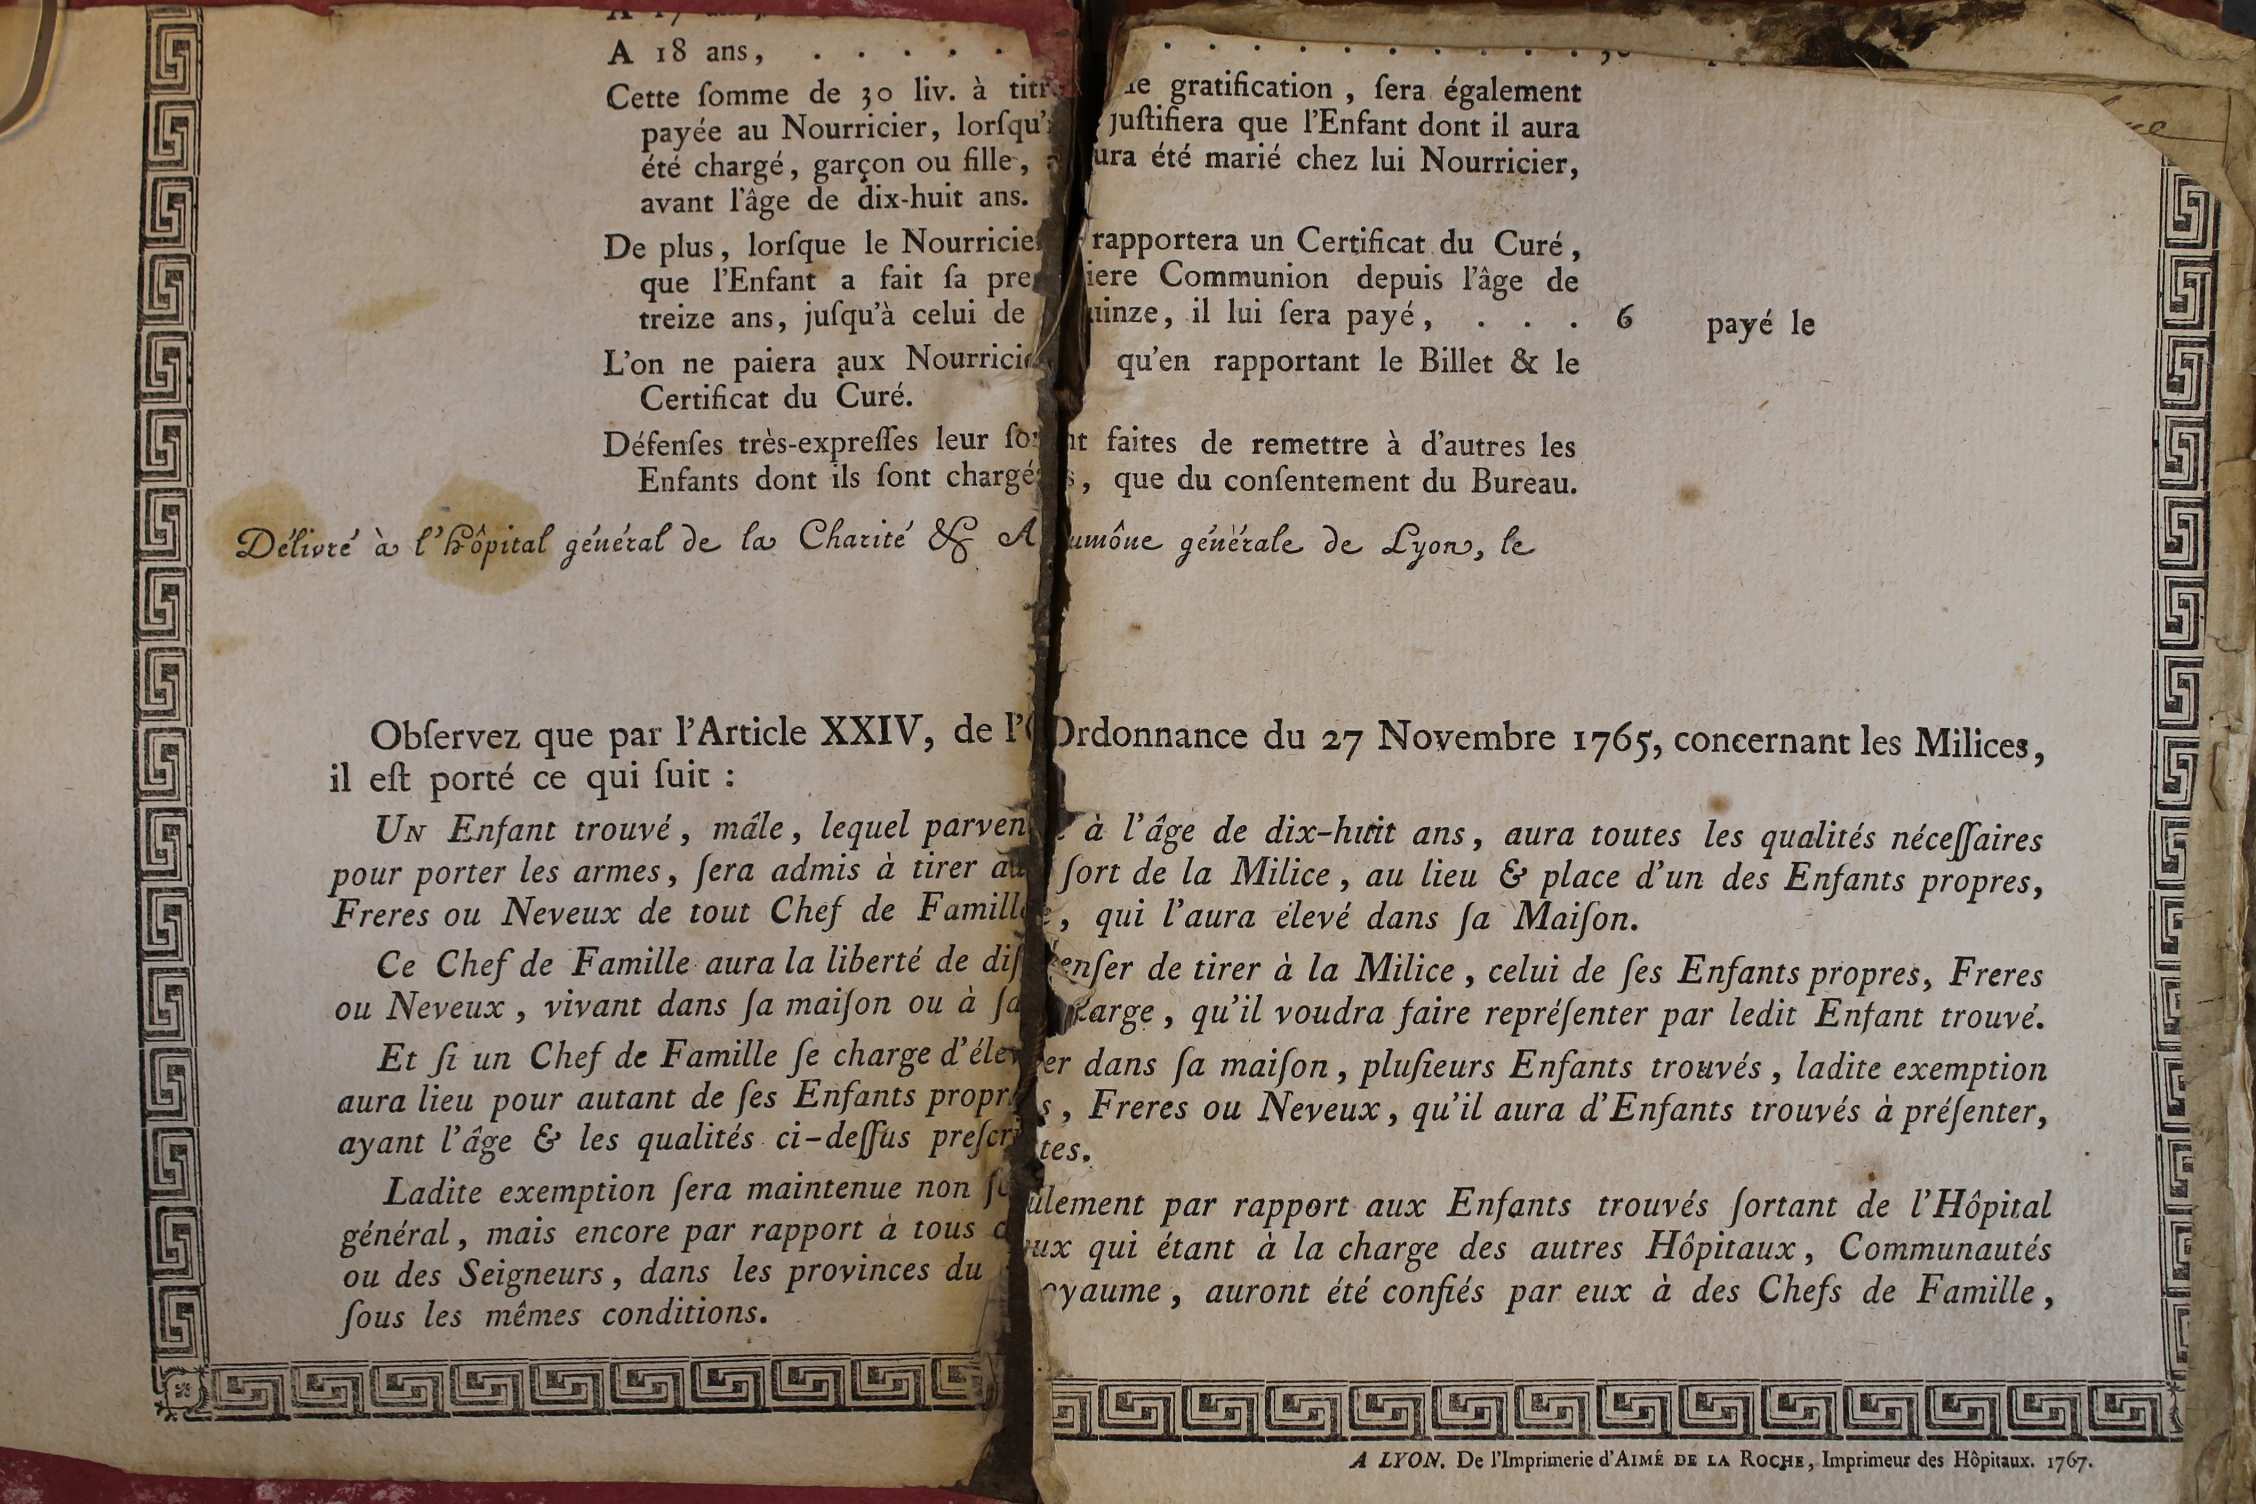 A 17 ans,
A 18 ans, . . . . . . . . . . . . . . .
Cette ſomme de 30 liv. à titre de gratification, ſera également
payée au Nourricier, lorſqu'il juſtifiera que l'Enfant dont il aura
été chargé, garçon ou fille, aura été marié chez lui Nourricier,
avant l'âge de dix-huit ans.
De plus, lorſque le Nourricier rapportera un Certificat du Curé,
que l'Enfant a fait ſa premiere Communion depuis l'âge de
treize ans, juſqu'à celui de quinze, il lui ſera payé, . . . 6 payé le
L'on ne paiera aux Nourriciers qu'en rapportant le Billet & le
Certificat du Curé.
Défenſes très-expreſſes leur ſont faites de remettre à d'autres les
Enfants dont ils ſont chargés, que du conſentement du Bureau.
Délivré à l'hôpital général de la Charité & Aumône générale de Lyon, le
Obſervez que par l'Article XXIV, de l'Ordonnance du 27 Novembre 1765, concernant les Milices,
il eſt porté ce qui ſuit :
UN Enfant trouvé, mâle, lequel parvenu à l'âge de dix-huit ans, aura toutes les qualités néceſſaires
pour porter les armes, ſera admis à tirer au ſort de la Milice, au lieu & place d'un des Enfants propres,
Freres ou Neveux de tout Chef de Famille, qui l'aura élevé dans ſa Maiſon.
Ce Chef de Famille aura la liberté de diſpenſer de tirer à la Milice, celui de ſes Enfants propres, Freres
ou Neveux, vivant dans ſa maiſon ou à ſa charge, qu'il voudra faire repréſenter par ledit Enfant trouvé.
Et ſi un Chef de Famille ſe charge d'élever dans ſa maiſon, pluſieurs Enfants trouvés, ladite exemption
aura lieu pour autant de ſes Enfants propres, Freres ou Neveux, qu'il aura d'Enfants trouvés à préſenter,
ayant l'âge & les qualités ci-deſſus preſcrites.
Ladite exemption ſera maintenue non ſeulement par rapport aux Enfants trouvés ſortant de l'Hôpital
général, mais encore par rapport à tous ceux qui étant à la charge des autres Hôpitaux, Communautés
ou des Seigneurs, dans les provinces du Royaume, auront été confiés par eux à des Chefs de Famille,
ſous les mêmes conditions.
A LYON. De l'Imprimerie d'AIMÉ DE LA ROCHE, Imprimeur des Hôpitaux. 1767.